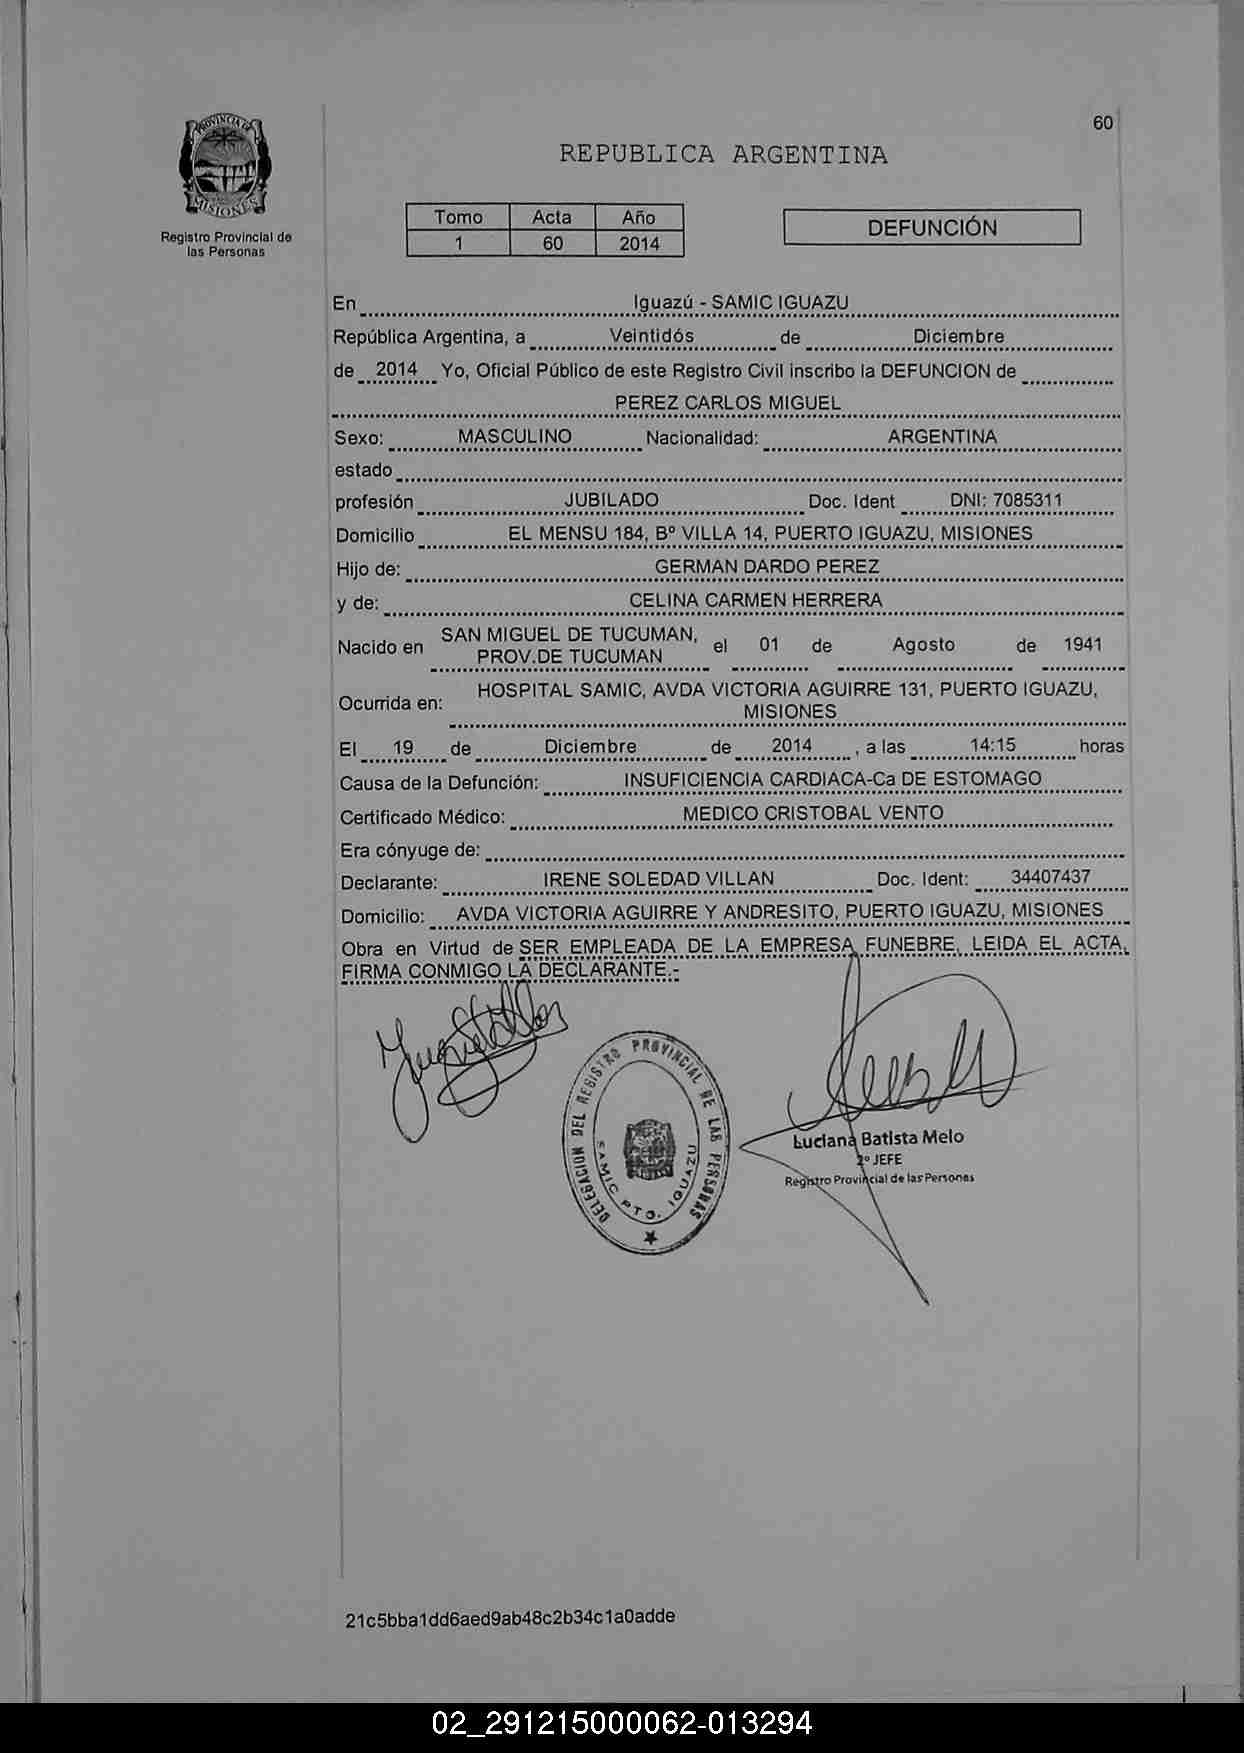 60
PROVINCIA DE
MISIONES
Registro Provincial de
las Personas
REPUBLICA ARGENTINA
Tomo Acta Año
1 60 2014
DEFUNCIÓN
En Iguazú - SAMIC IGUAZU
República Argentina, a Veintidós de Diciembre
de 2014 Yo, Oficial Público de este Registro Civil inscribo la DEFUNCION de
PEREZ CARLOS MIGUEL
Sexo: MASCULINO Nacionalidad: ARGENTINA
estado
profesión JUBILADO Doc. Ident DNI: 7085311
Domicilio EL MENSU 184, Bº VILLA 14, PUERTO IGUAZU, MISIONES
Hijo de: GERMAN DARDO PEREZ
y de: CELINA CARMEN HERRERA
Nacido en SAN MIGUEL DE TUCUMAN, PROV.DE TUCUMAN el 01 de Agosto de 1941
Ocurrida en: HOSPITAL SAMIC, AVDA VICTORIA AGUIRRE 131, PUERTO IGUAZU,
MISIONES
El 19 de Diciembre de 2014 , a las 14:15 horas
Causa de la Defunción: INSUFICIENCIA CARDIACA-Ca DE ESTOMAGO
Certificado Médico: MEDICO CRISTOBAL VENTO
Era cónyuge de:
Declarante: IRENE SOLEDAD VILLAN Doc. Ident: 34407437
Domicilio: AVDA VICTORIA AGUIRRE Y ANDRESITO, PUERTO IGUAZU, MISIONES
Obra en Virtud de SER EMPLEADA DE LA EMPRESA FUNEBRE, LEIDA EL ACTA,
FIRMA CONMIGO LA DECLARANTE.-
DELEGACION DEL REGISTRO PROVINCIAL DE LAS PERSONAS
SAMIC PTO. IGUAZU
Luciana Batista Melo
2º JEFE
Registro Provincial de las Personas
21c5bba1dd6aed9ab48c2b34c1a0adde
02_291215000062-013294